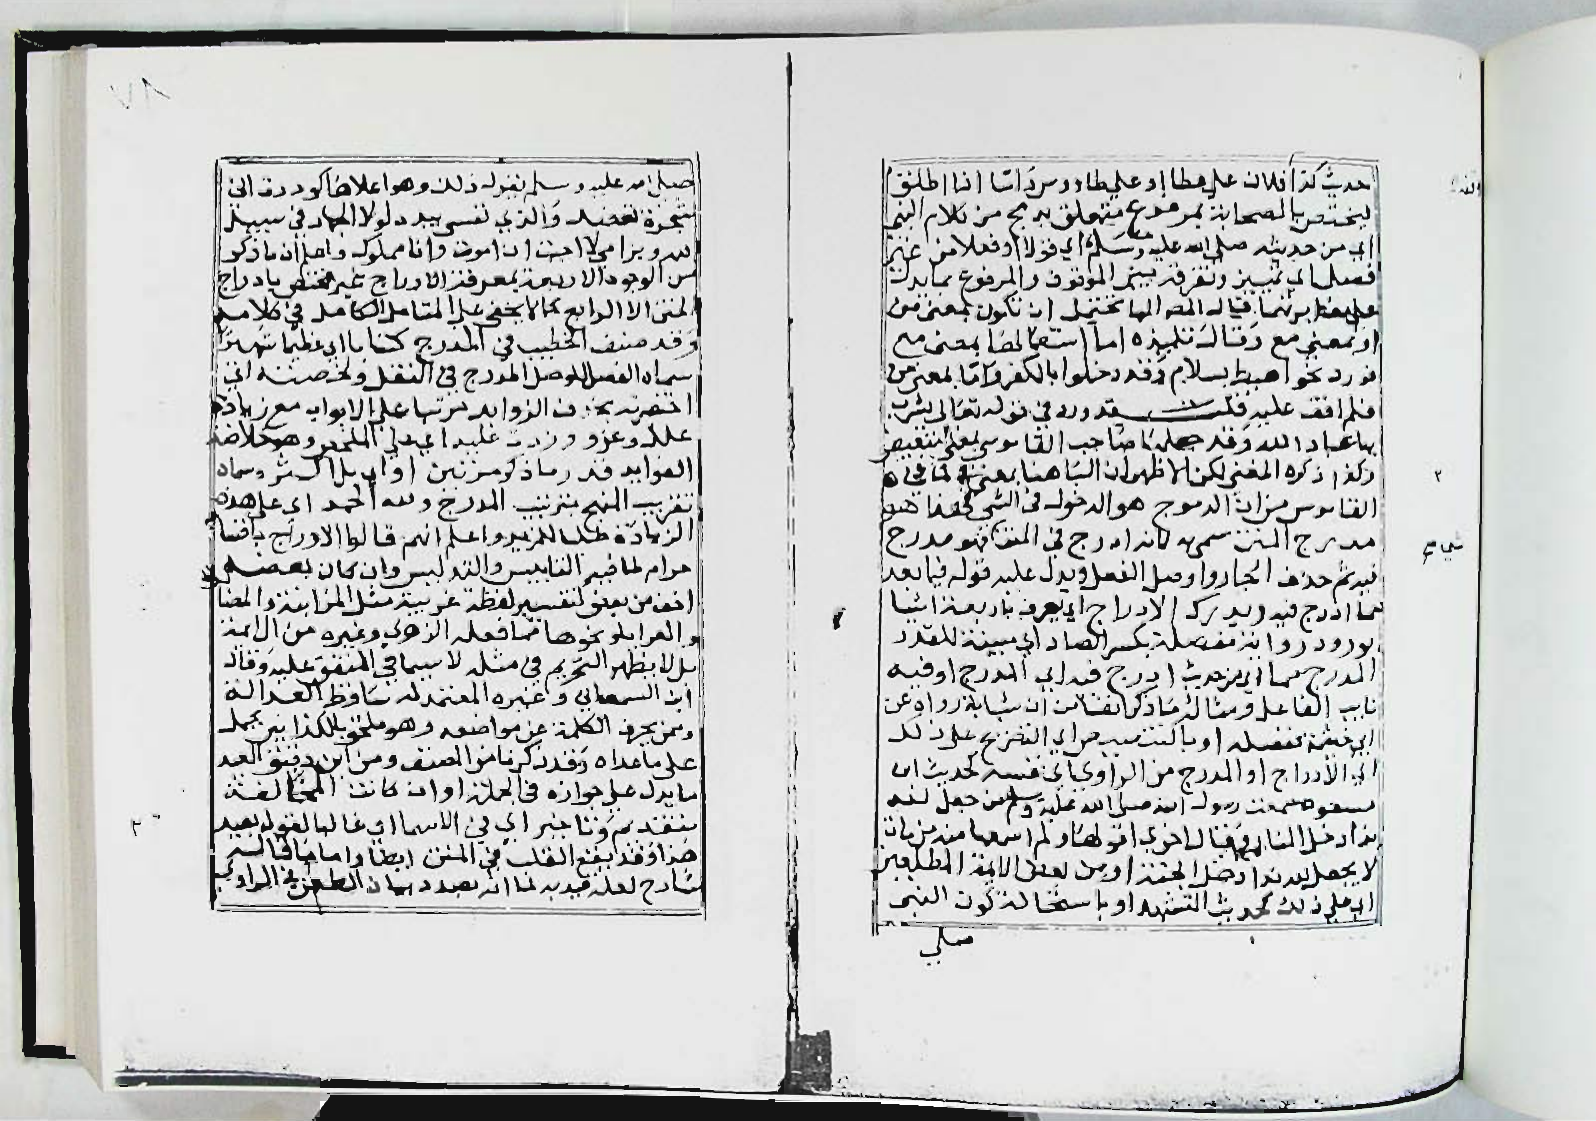 حديث كذا فلان على عطا او على طاووس واما اذا اطلق
ليختص بالصحابة بمرفوع متعلق بدمج من كلام النبي
اي من حديثه صلى الله عليه وسلم اي قولا او فعلا من غير
فصل اي تمييز وتفرقة بين الموقوف والمرفوع مما يدل
على قال المص انها تحتمل ان تكون بمعنى من
او بمعنى مع وقال تلميذه اما استعمالها بمعنى مع
فورد نحو اهبط بسلام وقد دخلوا بالكفر واما بمعنى من
فلم اقف عليه قلت قد ورد في قوله تعالى يشرب
بها عباد الله وقد جعلها صاحب القاموس بمعنى التبعيض
وكذا ذكره المغني لكن الاظهر ان الباء هنا بمعنى في لما في
القاموس من ان الدموج هو الدخول في الشي فهذا هو
مدرج المتن سمي به كانه ادرج في المتن فهو مدرج
فيه ثم حذف الجار واوصل الفعل ويدل عليه قوله فيما بعد
مما ادرج فيه ويدرك الادراج اي يعرف باربعة اشيا
بورود رواية مفصلة بكسر الصاد اي مبينة للقدر
المدرج مما اي من حديث ادرج فيه اي المدرج او فيه
نايب الفاعل ومثاله ما ذكر انفا من ان شبابة رواه عن
ابي خيثمة ففصله او بالتنصيص اي التصريح على ذلك
اي الادراج او المدرج من الراوي اي نفسه كحديث ابن
مسعود سمعت رسول الله صلى الله عليه وسلم من جعل لله
ندا دخل النار وقال اخرى اقولها ولم اسمعها منه من مات
لا يجعل لله ندا دخل الجنة او من بعض الايمة المطلعين
اي على ذلك كحديث التشهد او باستحالة كون النبي
صلى
٧٨
صلى الله عليه وسلم يقول ذلك وهو اعلاها كوددت اني
شجرة تعضد والذي نفسي بيده لولا الجهاد في سبيل
الله وبر امي لاحببت ان اموت وانا مملوك واعلم ان ما ذكر
من الوجوه الاربعة لمعرفة الادراج غير مختص بادراج
المتن الا الرابع كما لا يخفى على المتامل الكامل في كلامه
وقد صنف الخطيب في المدرج كتابا اي عظيما شهيرا
سماه الفصل للوصل المدرج في النقل ولخصته اي
اختصرته بحذف الزوايد مرتبا على الابواب مع زيادة
علل وعزو وزدت عليه اي على الملخص وهو خلاصة
الفوايد قدر ما ذكر مرتين او اي بل اكثر وسماه
تقريب المنهج بترتيب المدرج ولله الحمد اي على هذه
الزيادة طلبا للمزيد واعلم انهم قالوا الادراج باقسامه
حرام لما فيه التلبيس والتدليس وان كان بعضه
اخف من بعض كتفسير لفظة غريبة مثل المزابنة والمخا
و العرايا ونحوها مما فعله الزهري وغيره من الايمة
بل لا يظهر التحريم في مثله لا سيما في المتفق عليه وقال
ابن السمعاني وغيره المعتمد له ساقط العدالة
وممن يحرف الكلمة عن مواضعه وهو ملحق بالكذابين يحمل
على ما عداه وقد ذكرنا من المصنف ومن ابن دقيق العيد
ما يدل على جوازه في الجملة او ان كانت المخالفة
بتقديم وتاخير اي في الاسما اي غالبا لقوله بعيد
هذا وقد يقع القلب في المتن ايضا واما ما قاله
شارح لعله قيد به لما انه بصدد بيان الطعن في الراوي